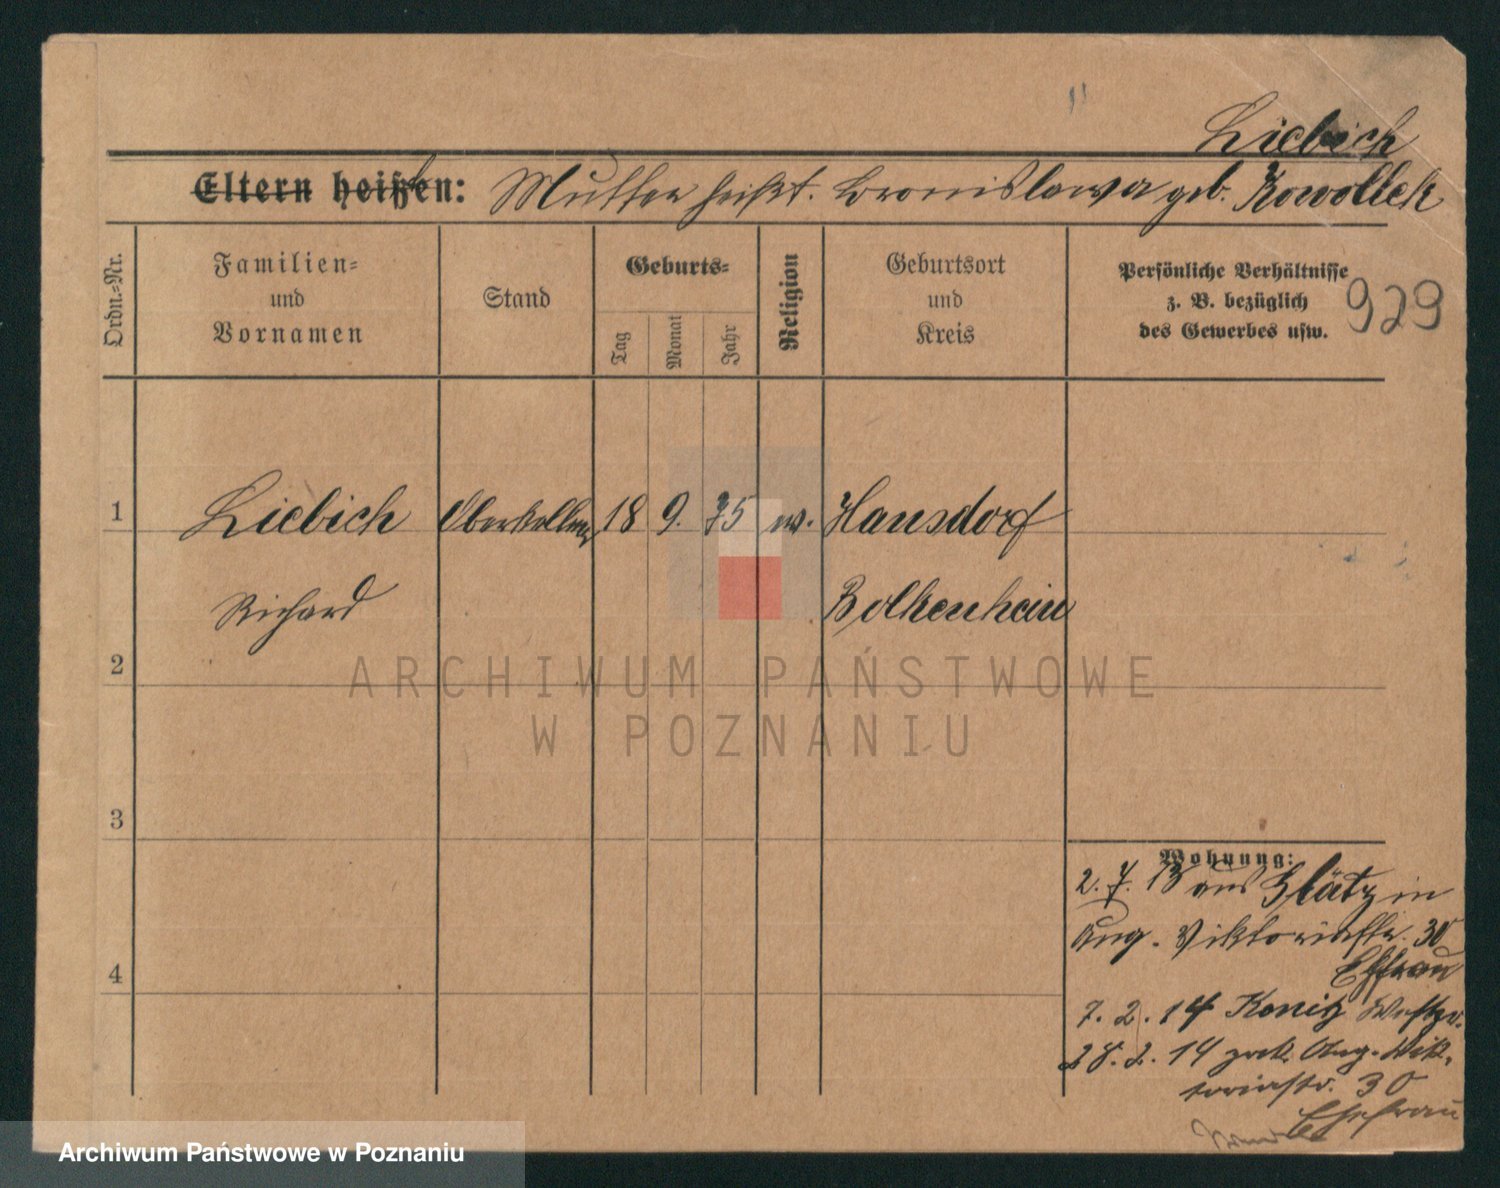 Liebich
Eltern heißen: Mutter heißt. Bronislawa geb. Kowollek
Ordn.-Nr.
Familien-
und
Vornamen
Stand
Geburts-
Tag
Monat
Jahr
Religion
Geburtsort
und
Kreis
Persönliche Verhältnisse
z. B. bezüglich
des Gewerbes usw.
929
1 Liebich Oberkellner 18 9. 75 w. Hansdorf
Richard Bolkenhain
2
3
4
Wohnung:
2. 7. 13 aus Glatz in
Aug. Viktoriastr. 30
Ehfrau
7. 2. 14 Konitz Westpr.
28. 2. 14 zurk. Aug. Vik-
toriastr. 30
Ehefrau
ARCHIWUM PAŃSTWOWE
W POZNANIU
Archiwum Państwowe w Poznaniu